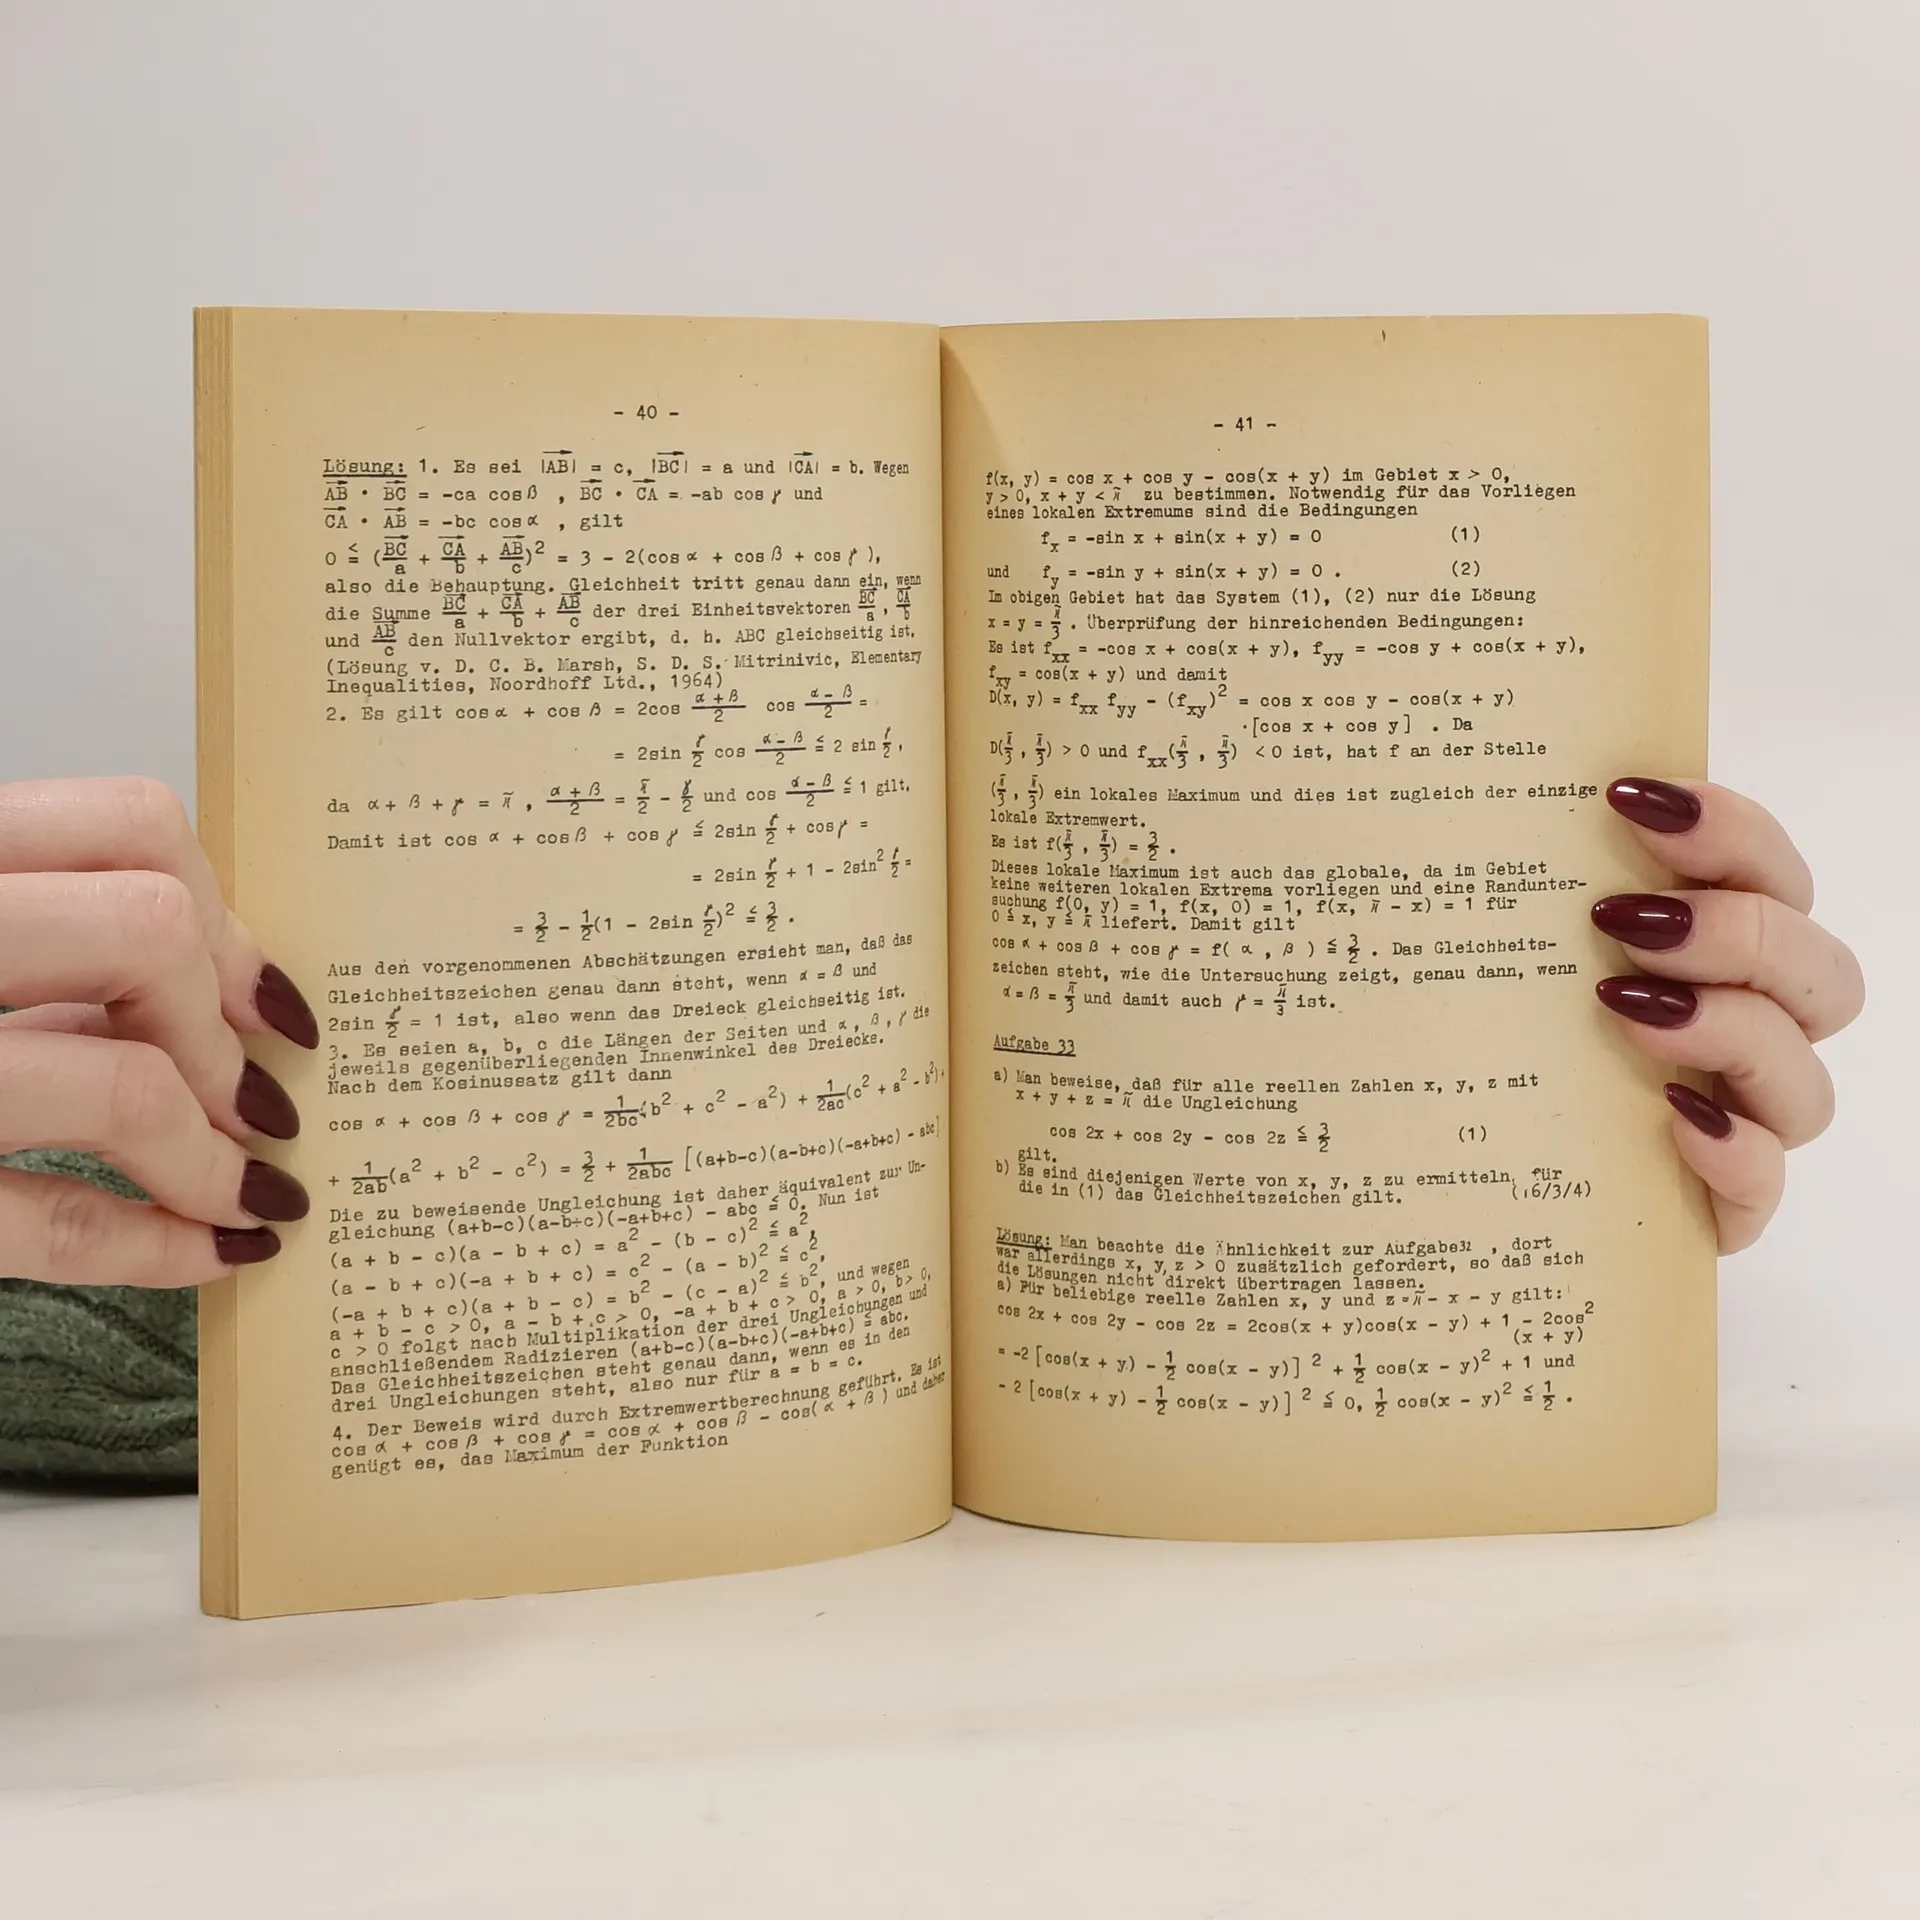 - 40 -
Lösung: 1. Es sei |AB| = c, |BC| = a und |CA| = b. Wegen
AB · BC = -ca cos β , BC · CA = -ab cos γ und
CA · AB = -bc cos α , gilt
0 ≦ (BC/a + CA/b + AB/c)² = 3 - 2(cos α + cos β + cos γ ),
also die Behauptung. Gleichheit tritt genau dann ein, wenn
die Summe BC/a + CA/b + AB/c der drei Einheitsvektoren BC/a , CA/b
und AB/c den Nullvektor ergibt, d. h. ABC gleichseitig ist.
(Lösung v. D. C. B. Marsh, S. D. S. Mitrinivic, Elementary
Inequalities, Noordhoff Ltd., 1964)
2. Es gilt cos α + cos β = 2cos (α + β)/2 cos (α - β)/2 =
= 2sin γ/2 cos (α - β)/2 ≦ 2 sin γ/2 ,
da α + β + γ = π , (α + β)/2 = π/2 - γ/2 und cos (α - β)/2 ≦ 1 gilt.
Damit ist cos α + cos β + cos γ ≦ 2sin γ/2 + cos γ =
= 2sin γ/2 + 1 - 2sin² γ/2 =
= 3/2 - 1/2(1 - 2sin γ/2)² ≦ 3/2 .
Aus den vorgenommenen Abschätzungen ersieht man, daß das
Gleichheitszeichen genau dann steht, wenn α = β und
2sin γ/2 = 1 ist, also wenn das Dreieck gleichseitig ist.
3. Es seien a, b, c die Längen der Seiten und α, β, γ die
jeweils gegenüberliegenden Innenwinkel des Dreiecks.
Nach dem Kosinussatz gilt dann
cos α + cos β + cos γ = 1/2bc(b² + c² - a²) + 1/2ac(c² + a² - b²) +
+ 1/2ab(a² + b² - c²) = 3/2 + 1/2abc [(a+b-c)(a-b+c)(-a+b+c) - abc]
Die zu beweisende Ungleichung ist daher äquivalent zur Un-
gleichung (a+b-c)(a-b+c)(-a+b+c) - abc ≦ 0. Nun ist
(a + b - c)(a - b + c) = a² - (b - c)² ≦ a²,
(a - b + c)(-a + b + c) = c² - (a - b)² ≦ c²,
(-a + b + c)(a + b - c) = b² - (c - a)² ≦ b², und wegen
a + b - c > 0, a - b + c > 0, -a + b + c > 0, a > 0, b > 0,
c > 0 folgt nach Multiplikation der drei Ungleichungen und
anschließendem Radizieren (a+b-c)(a-b+c)(-a+b+c) ≦ abc.
Das Gleichheitszeichen steht genau dann, wenn es in den
drei Ungleichungen steht, also nur für a = b = c.
4. Der Beweis wird durch Extremwertberechnung geführt. Es ist
cos α + cos β + cos γ = cos α + cos β - cos( α + β ) und daher
genügt es, das Maximum der Funktion
- 41 -
f(x, y) = cos x + cos y - cos(x + y) im Gebiet x > 0,
y > 0, x + y < π zu bestimmen. Notwendig für das Vorliegen
eines lokalen Extremums sind die Bedingungen
f_x = -sin x + sin(x + y) = 0 (1)
und f_y = -sin y + sin(x + y) = 0 . (2)
Im obigen Gebiet hat das System (1), (2) nur die Lösung
x = y = π/3 . Überprüfung der hinreichenden Bedingungen:
Es ist f_xx = -cos x + cos(x + y), f_yy = -cos y + cos(x + y),
f_xy = cos(x + y) und damit
D(x, y) = f_xx f_yy - (f_xy)² = cos x cos y - cos(x + y)
·[cos x + cos y] . Da
D(π/3 , π/3) > 0 und f_xx(π/3 , π/3) < 0 ist, hat f an der Stelle
(π/3 , π/3) ein lokales Maximum und dies ist zugleich der einzige
lokale Extremwert.
Es ist f(π/3 , π/3) = 3/2 .
Dieses lokale Maximum ist auch das globale, da im Gebiet
keine weiteren lokalen Extrema vorliegen und eine Randunter-
suchung f(0, y) = 1, f(x, 0) = 1, f(x, π - x) = 1 für
0 ≦ x, y ≦ π liefert. Damit gilt
cos α + cos β + cos γ = f( α , β ) ≦ 3/2 . Das Gleichheits-
zeichen steht, wie die Untersuchung zeigt, genau dann, wenn
α = β = π/3 und damit auch γ = π/3 ist.
Aufgabe 33
a) Man beweise, daß für alle reellen Zahlen x, y, z mit
x + y + z = π die Ungleichung
cos 2x + cos 2y - cos 2z ≦ 3/2 (1)
gilt.
b) Es sind diejenigen Werte von x, y, z zu ermitteln, für
die in (1) das Gleichheitszeichen gilt. (16/3/4)
Lösung: Man beachte die Ähnlichkeit zur Aufgabe 32 , dort
war allerdings x, y, z > 0 zusätzlich gefordert, so daß sich
die Lösungen nicht direkt übertragen lassen.
a) Für beliebige reelle Zahlen x, y und z = π - x - y gilt:
cos 2x + cos 2y - cos 2z = 2cos(x + y)cos(x - y) + 1 - 2cos²
(x + y)
= -2 [cos(x + y) - 1/2 cos(x - y)] ² + 1/2 cos(x - y)² + 1 und
- 2 [cos(x + y) - 1/2 cos(x - y)] ² ≦ 0, 1/2 cos(x - y)² ≦ 1/2 .